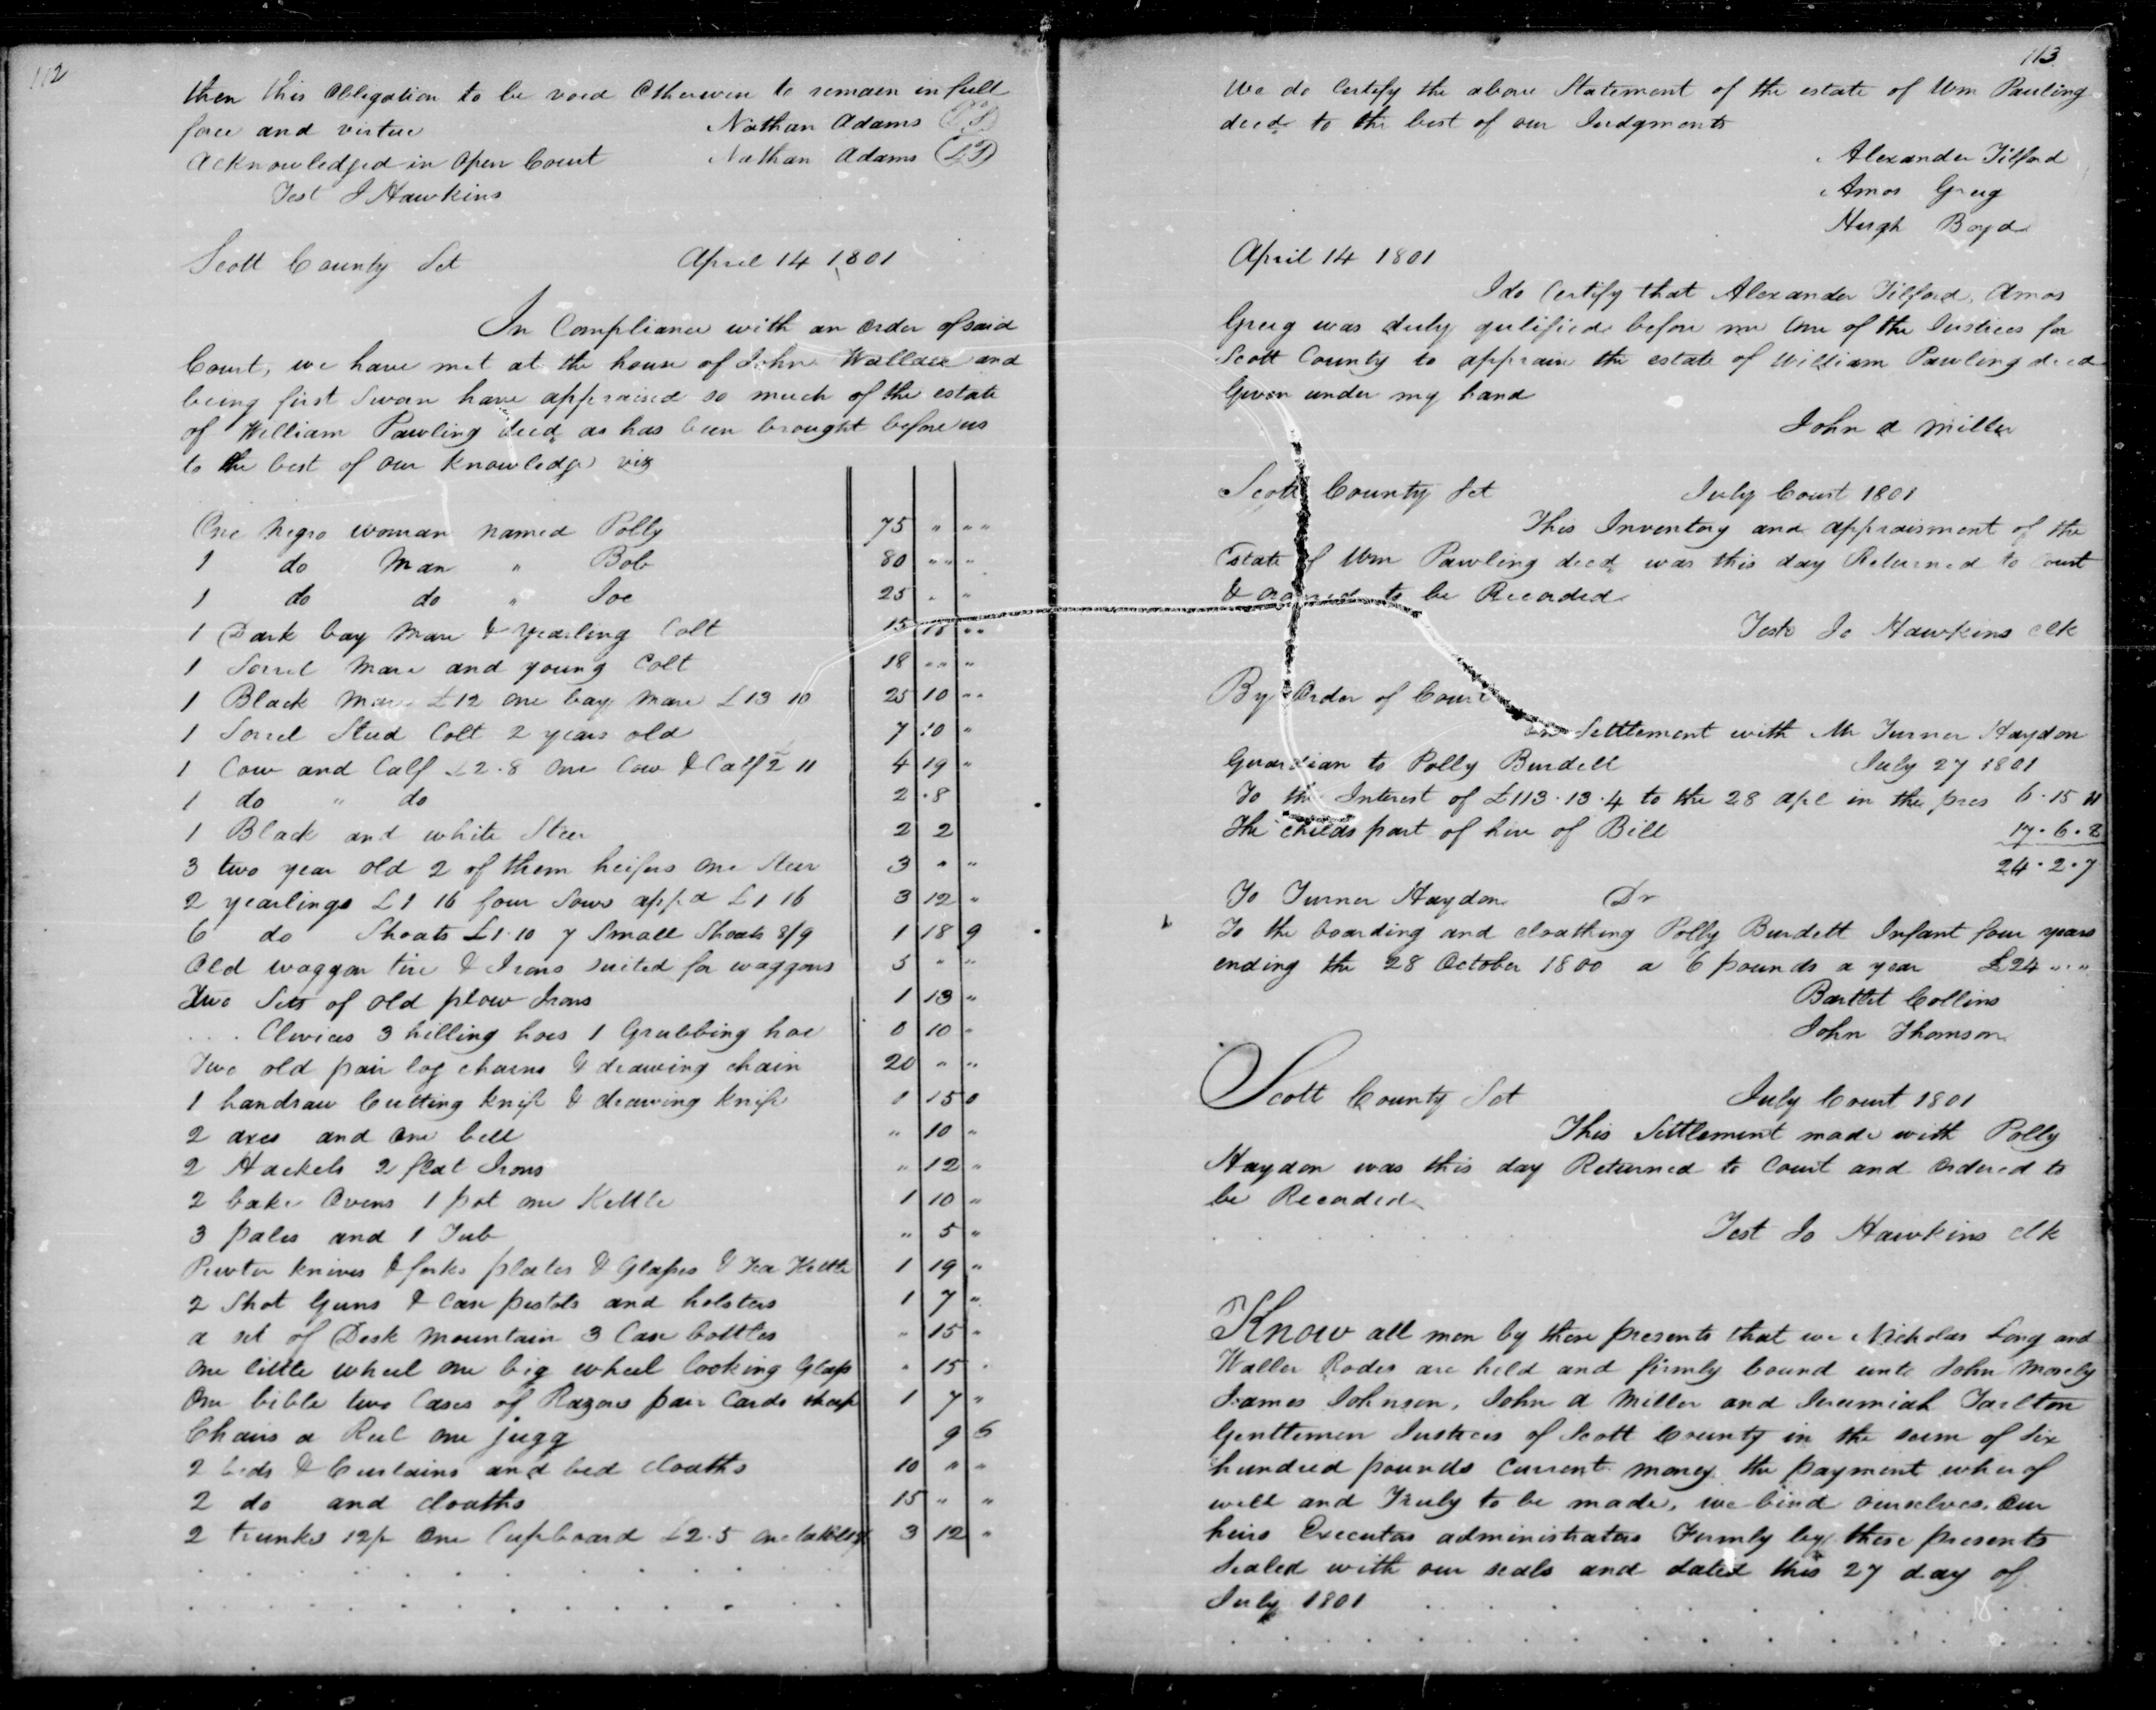 112
then this Obligation to be void Otherwise to remain in full
force and virtue Nathan Adams (LS)
Acknowledged in Open Court Nathan Adams (LS)
Test J Hawkins
Scott County Sct April 14 1801
In Compliance with an order of said
Court, we have met at the house of John Wallace and
being first Sworn have appraised so much of the estate
of William Pawling decd as has been brought before us
to the best of our knowledge viz
One negro woman named Polly 75 " " "
1 do Man " Bob 80 " " "
1 do do " Joe 25 " "
1 Dark bay Mare & yearling Colt 15 15 " "
1 Sorrel Mare and young Colt 18 " " "
1 Black Mare £12 one bay Mare £13 10 25 10 " "
1 Sorrel Stud Colt 2 years old 7 10 "
1 Cow and Calf £2.8 One Cow & Calf 2 11 4 19 "
1 do " do 2 .8
1 Black and white Steer 2 2
3 two year old 2 of them heifers one Steer 3 " "
2 yearlings £1 16 four Sows appd £1 16 3 12 "
6 do Shoats £1.10 7 Small Shoats 8/9 1 18 9
Old waggon tire & Irons suited for waggons 5 " "
Two Sets of old plow Irons 1 13 "
Clevices 3 hilling hoes 1 Grubbing hoe 0 10 "
Two old pair log chains & drawing chain 20 " "
1 handsaw Cutting knife & drawing knife 1 15 0
2 axes and one bell " 10 "
2 Hackels 2 flat Irons " 12 "
2 bake Ovens 1 pot one Kettle 1 10 "
3 pales and 1 Tub " 5 "
Pewter knives & forks plates & Glasses & Tea Kettle 1 19 "
2 Shot Guns & Case pistols and holsters 1 7 "
a set of Desk mountain 3 Case bottles " 15 "
one little wheel one big wheel looking Glass " 15 "
One bible two Cases of Razors pair Cards 1 7 "
Chairs a Reel one jugg 9 6
2 beds & Curtains and bed cloaths 10 " "
2 do and cloaths 15 " "
2 trunks 12/ One Cupboard £2.5 one 3 12 "
113
We do Certify the above Statement of the estate of Wm Pauling
decd to the best of our Judgments
Alexander Tilford
Amos Greug
Hugh Boyd
April 14 1801
I do Certify that Alexander Tilford, Amos
Greug was duly qulified before me One of the Justices for
Scott County to appraise the estate of William Pawling decd
Given under my hand
John A Miller
Scott County Sct July Court 1801
This Inventory and appraisment of the
Estate of Wm Pawling decd was this day Returned to Court
& ordered to be Recorded
Teste Jo Hawkins clk
By Order of Court
Settlement with Mr Turner Haydon
Guardian to Polly Burdett July 27 1801
To the Interest of £113.13.4 to the 28 apl in the pres 6.15 11
The childs part of hire of Bill 17.6.8
24.2.7
To Turner Haydon Dr
To the boarding and cloathing Polly Burdett Infant four years
ending the 28 October 1800 a 6 pounds a year £24 " "
Bartlet Collins
John Thomson
Scott County Sct July Court 1801
This Settlement made with Polly
Haydon was this day Returned to Court and Ordered to
be Recorded
Test Jo Hawkins clk
Know all men by these presents that we Nicholas Long and
Waller Rodes are held and firmly bound unto John Mosely
James Johnson, John A Miller and Jeremiah Tarlton
Genttemen Justices of Scott County in the sum of Six
hundred pounds Current money the payment wherof
well and Truly to be made, we bind ourselves, our
heirs Executors administrators Firmly by these presents
Sealed with our seals and dated this 27 day of
July 1801